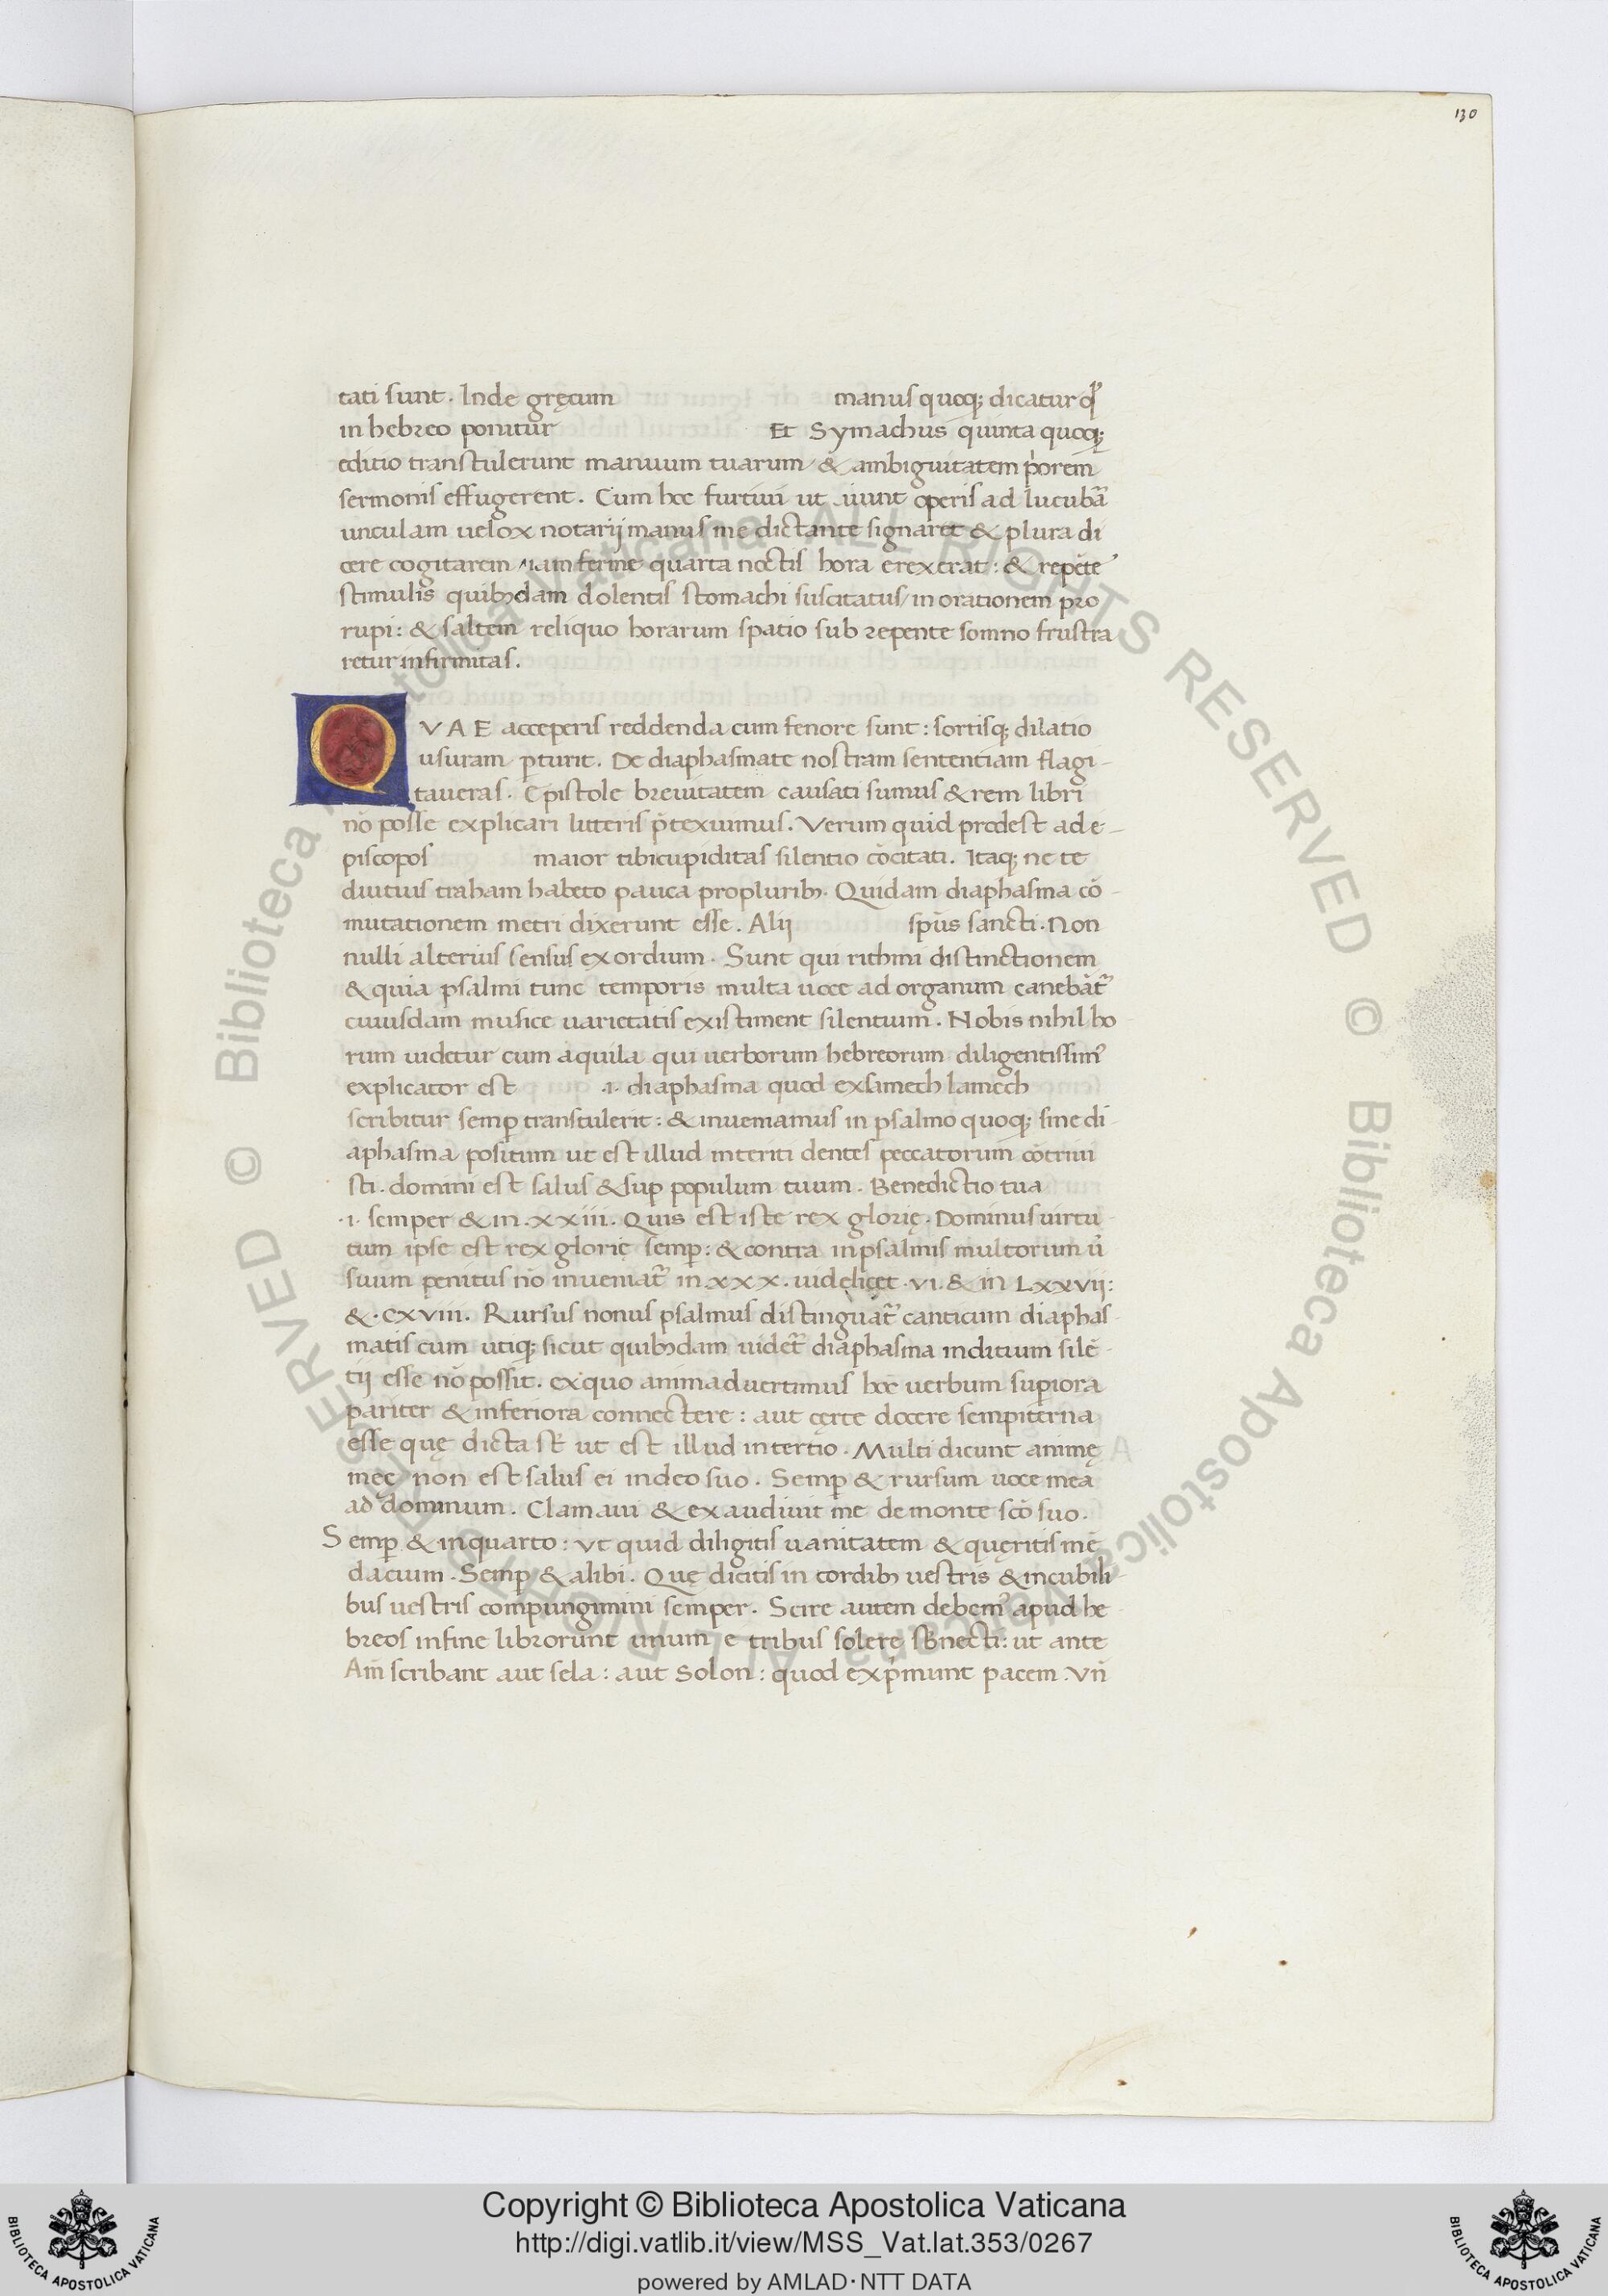 130
tati sunt. Inde gręcum manus quoq; dicatur qď
in hebreo ponitur Et Symachus quinta quoq;
editio transtulerunt manuum tuarum / & ambiguitatem p̍orem
sermonis effugerent. Cum hoc furtiui ut aiunt operis ad lucubã
unculam uelox notarij manus me dictante signaret & plura di
cere cogitarem / iam ferme quarta noctis hora erexerat: & repẽte
stimulis quibꝫdam dolentis stomachi suscitatus / in orationem pro
rupi: & saltem reliquo horarum spatio sub repente somno frustra
retur infirmitas.
QVAE acceperis reddenda cum fenore sunt: sortisq; dilatio
usuram ꝑturit. De diaphasmate nostram sententiam flagi-
taueras. Epistole breuitatem causati sumus & rem libri
nõ posse explicari litteris p̃texuimus. Verum quid prodest ad e-
piscopos maior tibi cupiditas silentio cõcitati. Itaq; ne te
diutius traham habeto pauca pro pluribꝫ. Quidam diaphasma cõ-
mutationem metri dixerunt esse. Alij sp̃us sancti. Non
nulli alterius sensus exordium. Sunt qui rithmi distinctionem
& quia psalmi tunc temporis multa uoce ad organum canebãt᷑
cuiusdam musice uarietatis existiment silentium. Nobis nihil ho
rum uidetur cum aquila qui uerborum hebreorum diligentissimꝰ
explicator est .i. diaphasma quod ex samech lamech
scribitur semꝑ transtulerit: & inueniamus in psalmo quoq; fine di-
aphasma positum ut est illud interiti dentes peccatorum cõtriui
sti. domini est salus & suꝑ populum tuum. Benedictio tua
.i. semper & in .xxiii. Quis est iste rex glorię. Dominus uirtu
tum ipse est rex glorię semꝑ: & contra in psalmis multorum ũ
suum penitus nõ inueniat᷑ in .xxx. uidelicet .vi. & in Lxxvij:
& .cxviii. Rursus nonus psalmus distinguat᷑ canticum diaphas-
matis cum utiq; sicut quibꝫdam uidet᷑ diaphasma inditium silẽ-
tij esse nõ possit. ex quo animaduertimus hoc uerbum suꝑiora
pariter & inferiora connectere: aut certe docere sempiterna
esse quę dicta st̃ ut est illud in tertio. Multi dicunt animę
meę non est salus ei in deo suo. Semꝑ & rursum uoce mea
ad dominum. Clamaui & exaudiuit me de monte scõ suo.
Semꝑ & in quarto: ut quid diligitis uanitatem & quęritis mẽ
dacium. Semꝑ & alibi. Quę dicitis in cordibꝫ uestris & in cubili-
bus uestris compungimini semper. Scire autem debemꝰ apud he
breos in fine librorunt unum e tribus solere sb̃necti: ut ante
Am̃ scribant aut sela: aut Solon: quod exp̍munt pacem. Vñ
Copyright © Biblioteca Apostolica Vaticana
http://digi.vatlib.it/view/MSS_Vat.lat.353/0267
powered by AMLAD·NTT DATA
BIBLIOTECA APOSTOLICA VATICANA
BIBLIOTECA APOSTOLICA VATICANA
© Biblioteca Apostolica Vaticana ALL RIGHTS RESERVED © Biblioteca Apostolica Vaticana ALL RIGHTS RESERVED